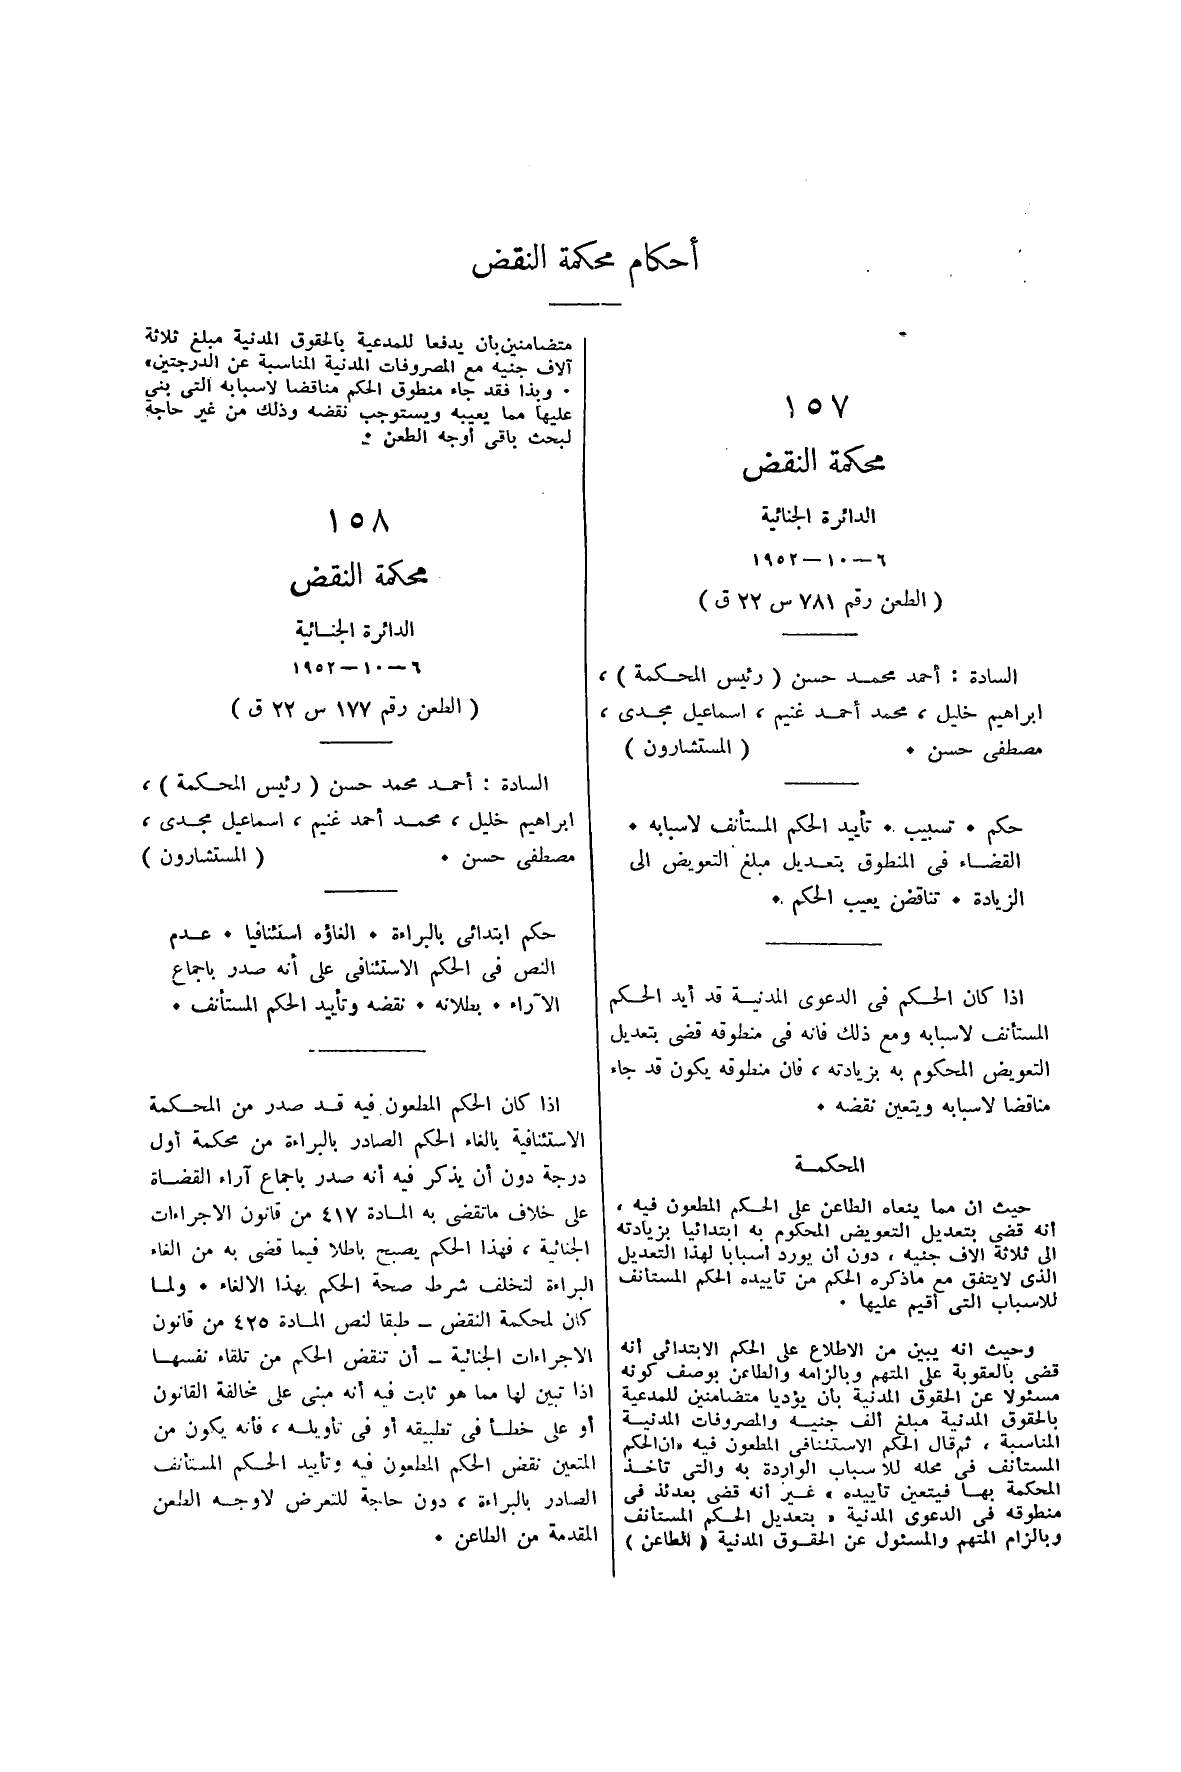 أحكام محكمة النقض
١٥٧
محكمة النقض
الدائرة الجنائية
٦ – ١٠ – ١٩٥٢
( الطعن رقم ٧٨١ س ٢٢ ق )
السادة : أحمد محمد حسن ( رئيس المحكمة ) ،
ابراهيم خليل ، محمد أحمد غنيم ، اسماعيل مجدى ،
مصطفى حسن . ( المستشارون )
حكم . تسبيب . تأييد الحكم المستأنف لاسبابه .
القضاء فى المنطوق بتعديل مبلغ التعويض الى
الزيادة . تناقض يعيب الحكم .
اذا كان الحكم فى الدعوى المدنية قد أيد الحكم
المستأنف لاسبابه ومع ذلك فانه فى منطوقه قضى بتعديل
التعويض المحكوم به بزيادته ، فان منطوقه يكون قد جاء
مناقضا لاسبابه ويتعين نقضه .
المحكمة
حيث ان مما ينعاه الطاعن على الحكم المطعون فيه ،
أنه قضى بتعديل التعويض المحكوم به ابتدائيا بزيادته
الى ثلاثة الاف جنيه ، دون أن يورد أسبابا لهذا التعديل
الذى لايتفق مع ماذكره الحكم من تأييده الحكم المستانف
للاسباب التى أقيم عليها .
وحيث انه يبين من الاطلاع على الحكم الابتدائى أنه
قضى بالعقوبة على المتهم وبالزامه والطاعن بوصف كونه
مسئولا عن الحقوق المدنية بأن يؤديا متضامنين للمدعية
بالحقوق المدنية مبلغ ألف جنيه والمصروفات المدنية
المناسبة ، ثم قال الحكم الاستئنافى المطعون فيه «ان الحكم
المستأنف فى محله للاسباب الواردة به والتى تأخذ
المحكمة بها فيتعين تأييده » غير أنه قضى بعدئذ فى
منطوقه فى الدعوى المدنية « بتعديل الحكم المستأنف
وبالزام المتهم والمسئول عن الحقوق المدنية ( الطاعن )
متضامنين بأن يدفعا للمدعية بالحقوق المدنية مبلغ ثلاثة
آلاف جنيه مع المصروفات المدنية المناسبة عن الدرجتين»
. وبذا فقد جاء منطوق الحكم مناقضا لاسبابه التى بنى
عليها مما يعيبه ويستوجب نقضه وذلك من غير حاجة
لبحث باقى أوجه الطعن .
١٥٨
محكمة النقض
الدائرة الجنائية
٦ – ١٠ – ١٩٥٢
( الطعن رقم ١٧٧ س ٢٢ ق )
السادة : أحمد محمد حسن ( رئيس المحكمة ) ،
ابراهيم خليل ، محمد أحمد غنيم ، اسماعيل مجدى ،
مصطفى حسن . ( المستشارون )
حكم ابتدائى بالبراءة . الغاؤه استئنافيا . عدم
النص فى الحكم الاستئنافى على أنه صدر باجماع
الآراء . بطلانه . نقضه وتأييد الحكم المستأنف .
اذا كان الحكم المطعون فيه قد صدر من المحكمة
الاستئنافية بالغاء الحكم الصادر بالبراءة من محكمة أول
درجة دون أن يذكر فيه أنه صدر باجماع آراء القضاة
على خلاف ماتقضى به المادة ٤١٧ من قانون الاجراءات
الجنائية ، فهذا الحكم يصبح باطلا فيما قضى به من الغاء
البراءة لتخلف شرط صحة الحكم بهذا الالغاء . ولما
كان لمحكمة النقض – طبقا لنص المادة ٤٢٥ من قانون
الاجراءات الجنائية – أن تنقض الحكم من تلقاء نفسها
اذا تبين لها مما هو ثابت فيه أنه مبنى على مخالفة القانون
أو على خطأ فى تطبيقه أو فى تأويله ، فأنه يكون من
المتعين نقض الحكم المطعون فيه وتأييد الحكم المستأنف
الصادر بالبراءة ، دون حاجة للتعرض لاوجه الطعن
المقدمة من الطاعن .